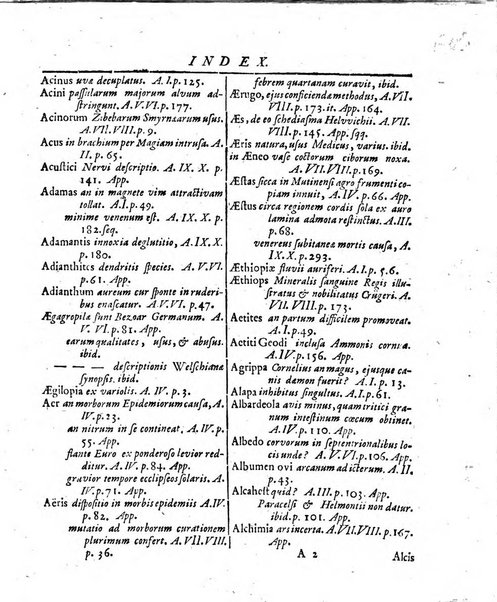 INDEX.
Acinus uvæ decuplatus. A. I. p. 125.
Acini passularum majorum alvum ad-
stringunt. A. V. VI. p. 177.
Acinorum Zibebarum Smyrnæarum usus.
A. VII. VIII. p. 9.
Acus in brachium per Magiam intrusa. A.
II. p. 65.
Acustici Nervi descriptio. A. IX. X. p.
141. App.
Adamas an in magnete vim attractivam
tollat. A. I. p. 49.
minime venenum est. A. IX. X. p.
182. seq.
Adamantis innoxia deglutitio, A. IX. X.
p. 180.
Adianthites dendritis species. A. V. VI.
p. 61. App.
Adianthum aureum cur sponte in ruderi-
bus enascatur. A. V. VI. p. 47.
Ægagropilæ sunt Bezoar Germanum. A.
V. VI. p. 81. App.
earum qualitates, usus, & abusus.
ibid.
— — — descriptionis Welschianæ
synopsis. ibid.
Ægilopia ex variolis. A. IV. p. 3.
Aer an morborum Epidemiorum causa, A.
IV. p. 23.
an nitrum in se contineat. A. IV. p.
55. App.
flante Euro ex ponderoso levior red-
ditur. A. IV. p. 84. App.
gravior tempore ecclipseos solaris. A.
IV. p. 71. App.
Aëris dispositio in morbis epidemiis A. IV.
p. 82. App.
mutatio ad morborum curationem
plurimum confert. A. VII. VIII.
p. 36.
febrem quartanam curavit, ibid.
Ærugo, ejus conficiendæ methodus, A. VII.
VIII. p. 173. it. App. 164.
Æs, de eo schediasma Helvvichii. A. VII.
VIII. p. 145. App. sqq.
Æris natura, usus Medicus, varius. ibid.
in Æneo vase coctorum ciborum noxa.
A. VII. VIII. p. 169.
Æstas sicca in Mutinensi agro frumenti co-
piam innuit, A. IV. p. 66. App.
Æstus circa regionem cordis sola ex auro
lamina admota restinctus. A. III.
p. 68.
venereus subitaneæ mortis causa, A.
IX. X. p. 293.
Æthiopiæ fluvii auriferi. A. I. p. 5. 6.
Æthiops Mineralis sanguine Regis illu-
stratus & nobilitatus Crügeri. A.
VII. VIII. p. 173.
Aetites an partum difficilem promoveat.
A. I. p. 49.
Aetiti Geodi inclusa Ammonis cornua.
A. IV. p. 156. App.
Agrippa Cornelius an magus, ejusque ca-
nis dæmon fuerit? A. I. p. 13.
Alapa inhibitus singultus. A. I. p. 61.
Albardeola avis minus, quam tritici gra-
num intestinum cœcum obtinet.
A. IV. p. 110. App.
Albedo corvorum in septentrionalibus lo-
cis unde? A. V. VI. p. 106. App.
Albumen ovi arcanum ad icterum. A. III.
p. 43.
Alcahest quid? A. III. p. 103. App.
Paracelsi & Helmontii non datur.
ibid. p. 101. App.
Alchimia ars incerta. A. VII. VIII. p. 167.
App.
A 2 Alcis